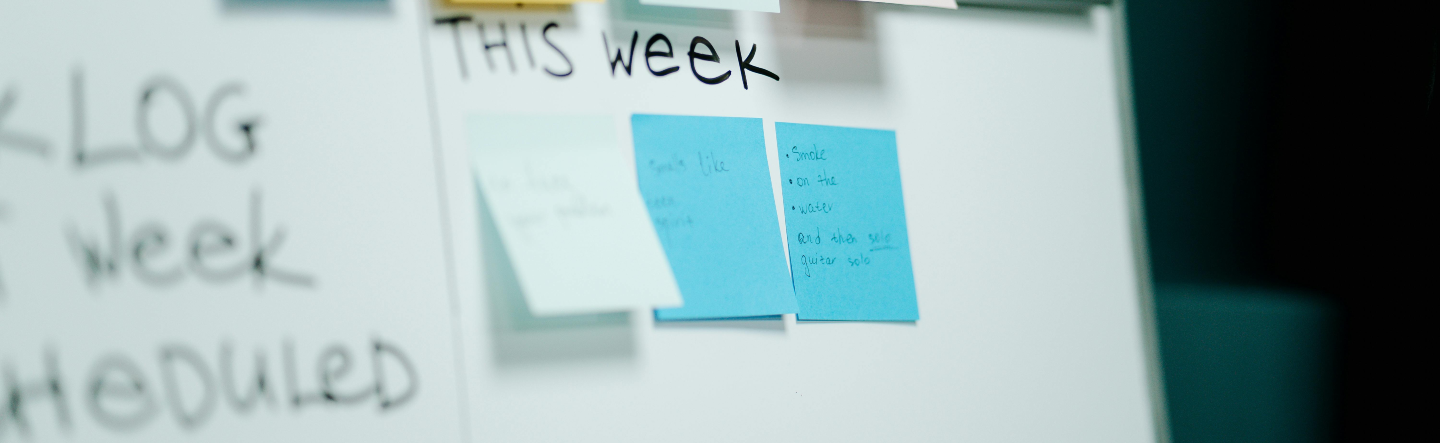 KLOG
Week
HEDULED
THIS Week
smells like
teen
spirit
• Smoke
• on the
• water
and then solo
guitar solo